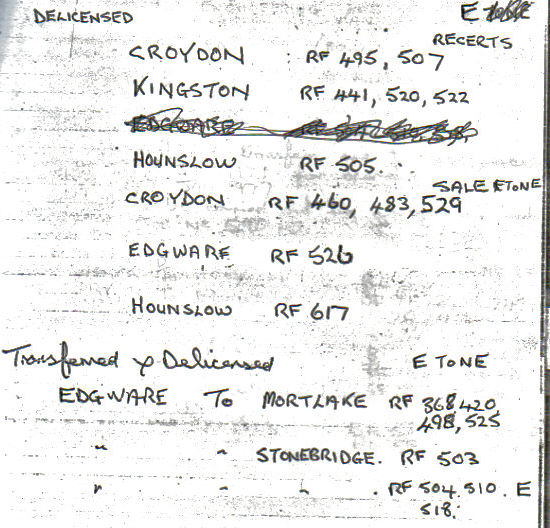 DELICENSED E
RECERTS
CROYDON RF 495, 507
KINGSTON RF 441, 520, 522
EDGWARE RF
HOUNSLOW RF 505.
SALE ETONE
CROYDON RF 460, 483, 529
EDGWARE RF 526
HOUNSLOW RF 617
Transferred & Delicensed E TONE
EDGWARE TO MORTLAKE RF 368 420
498, 525
" " STONEBRIDGE. RF 503
" " " . RF 504. 510. E
518.